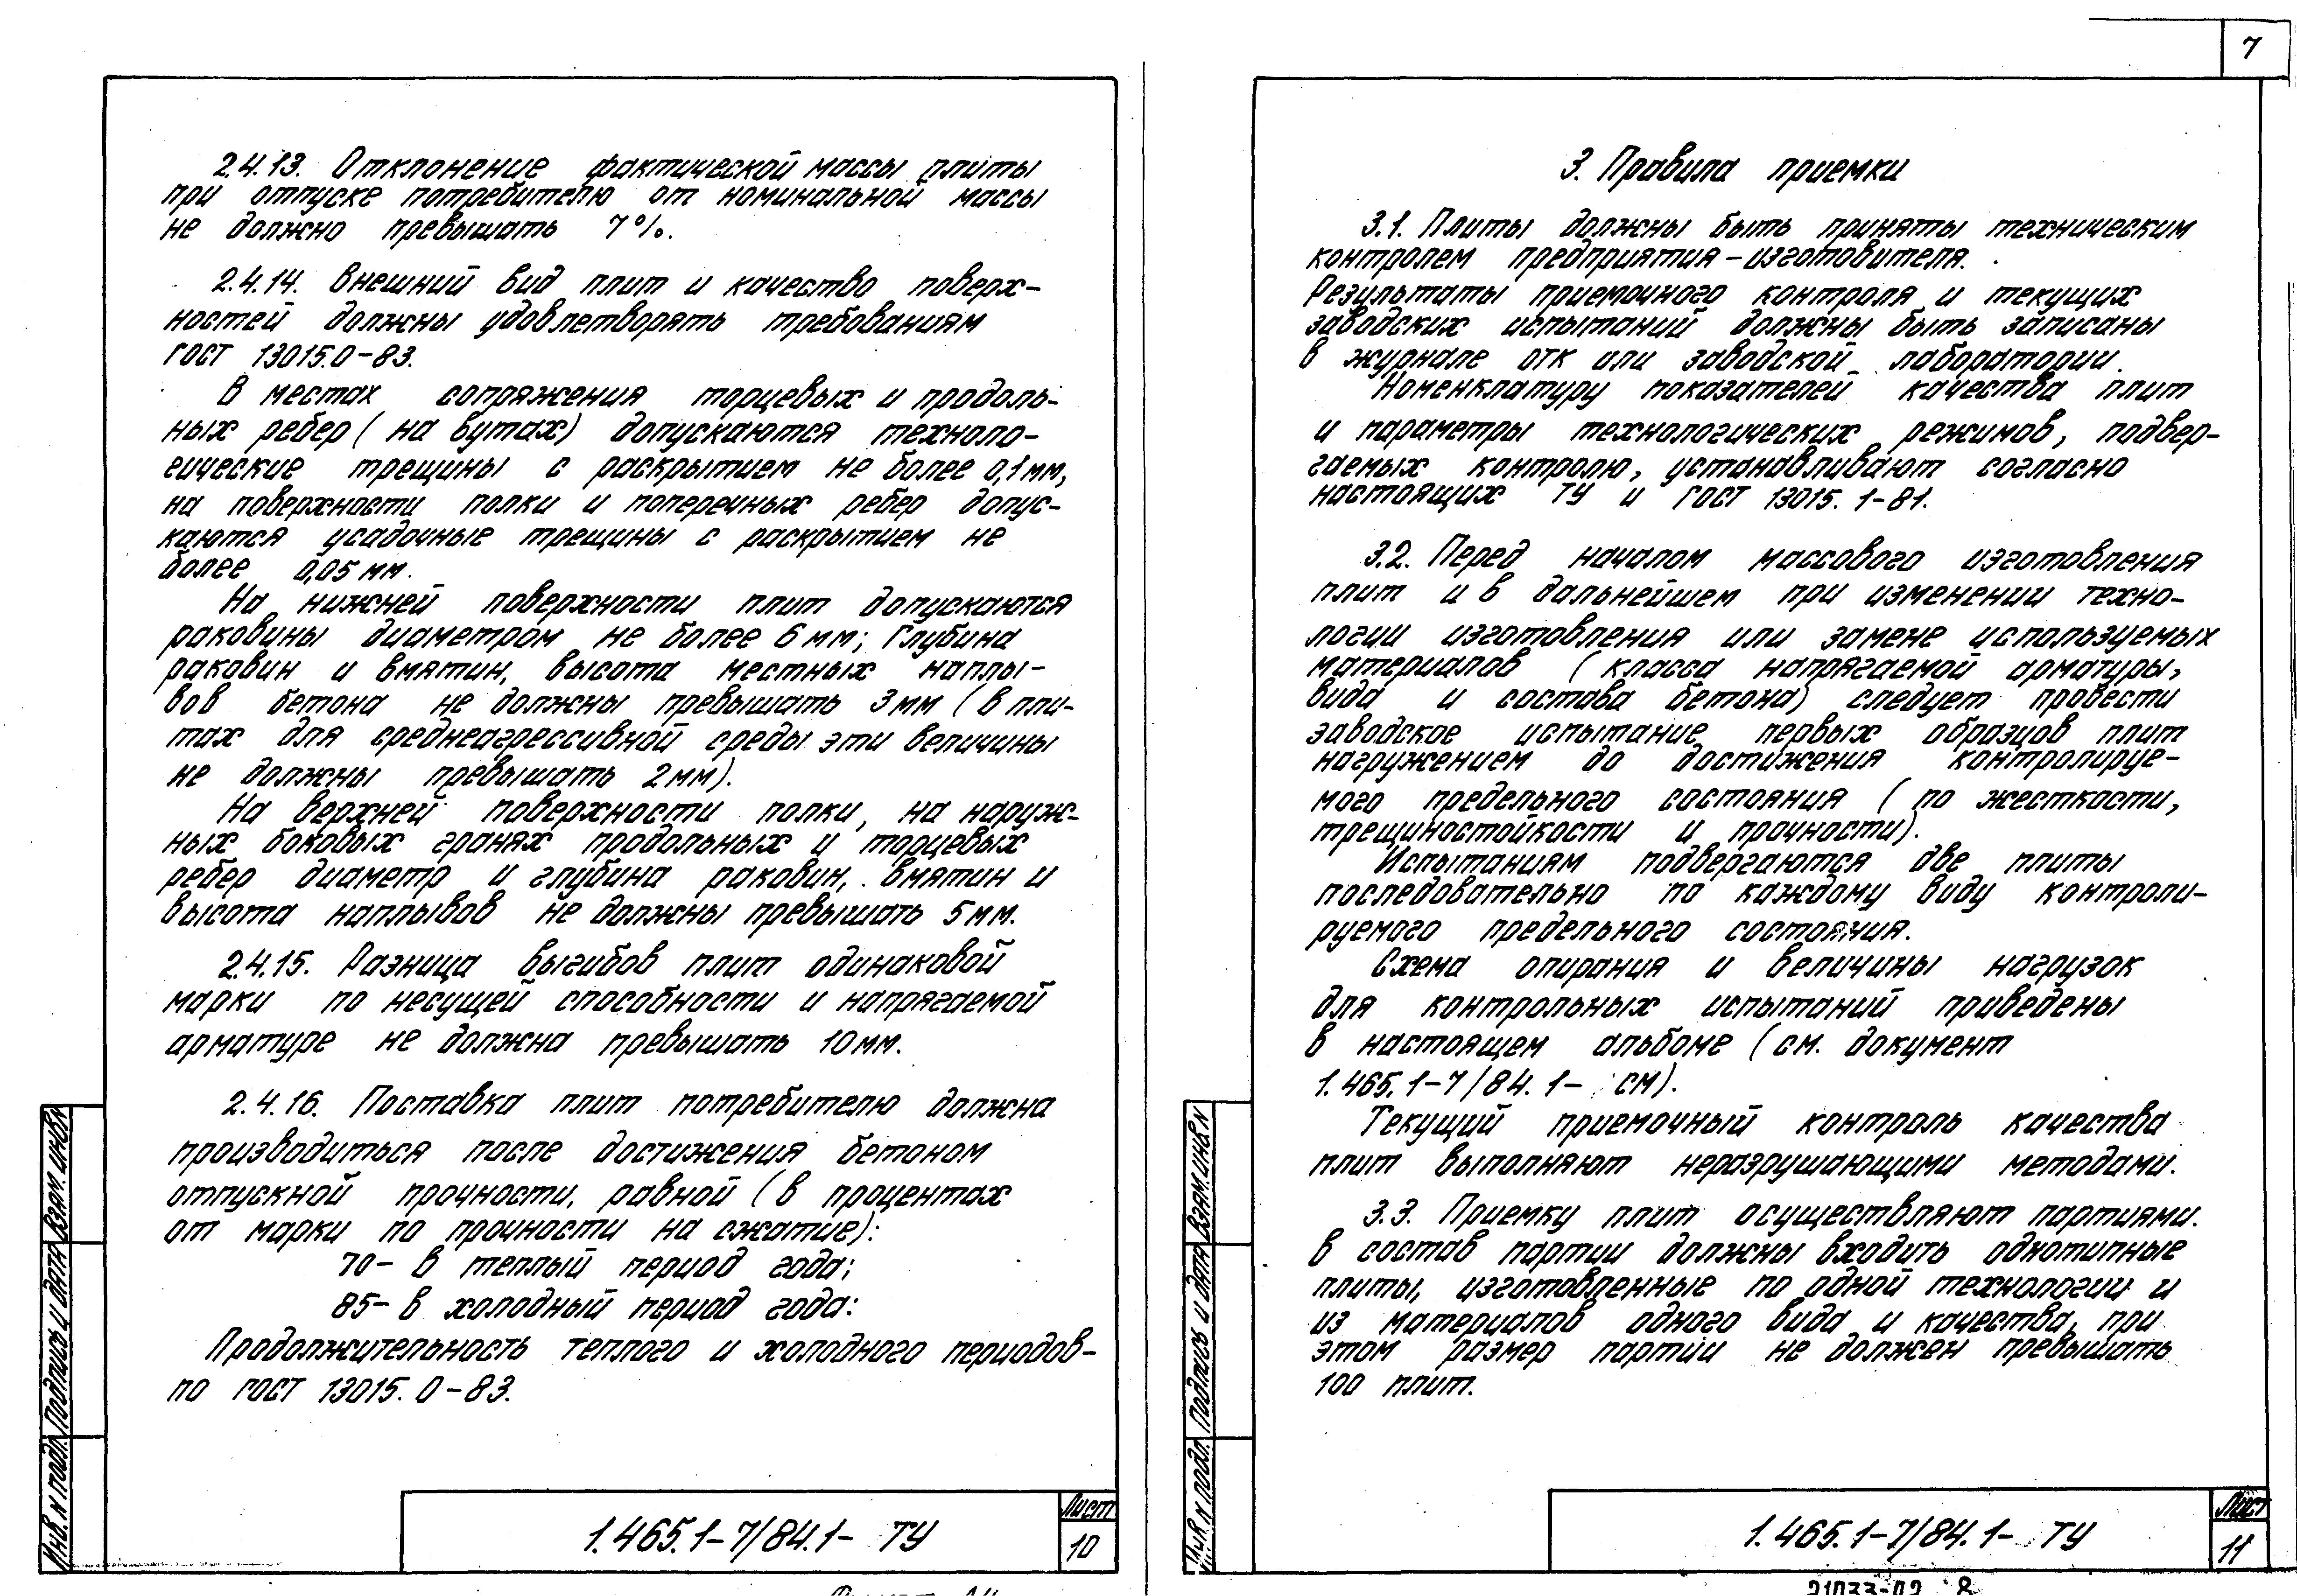 7
2.4.13. Отклонение фактической массы плиты
при отпуске потребителю от номинальной массы
не должно превышать 7%.
2.4.14. Внешний вид плит и качество поверх-
ностей должны удовлетворять требованиям
ГОСТ 13015.0-83.
В местах сопряжения торцевых и продоль-
ных ребер (на вутах) допускаются техноло-
гические трещины с раскрытием не более 0,1мм,
на поверхности полки и поперечных ребер допус-
каются усадочные трещины с раскрытием не
более 0,05 мм.
На нижней поверхности плит допускаются
раковины диаметром не более 6 мм; Глубина
раковин и вмятин, высота местных наплы-
вов бетона не должны превышать 3мм (в пли-
тах для среднеагрессивной среды эти величины
не должны превышать 2мм).
На верхней поверхности полки, на наруж-
ных боковых гранях продольных и торцевых
ребер диаметр и глубина раковин, вмятин и
высота наплывов не должны превышать 5мм.
2.4.15. Разница выгибов плит одинаковой
марки по несущей способности и напрягаемой
арматуре не должна превышать 10мм.
2.4.16. Поставка плит потребителю должна
производиться после достижения бетоном
отпускной прочности, равной (в процентах
от марки по прочности на сжатие):
70- в теплый период года;
85- в холодный период года:
Продолжительность теплого и холодного периодов-
по ГОСТ 13015.0-83.
Инв. N подл. Подпись и дата Взам. инв N
1.465.1-7/84.1- ТУ
Лист
10
3. Правила приемки
3.1. Плиты должны быть приняты техническим
контролем предприятия-изготовителя.
Результаты приемочного контроля и текущих
заводских испытаний должны быть записаны
в журнале ОТК или заводской лаборатории.
Номенклатуру показателей качества плит
и параметры технологических режимов, подвер-
гаемых контролю, устанавливают согласно
настоящих ТУ и ГОСТ 13015.1-81.
3.2. Перед началом массового изготовления
плит и в дальнейшем при изменении техно-
логии изготовления или замене используемых
материалов (класса напрягаемой арматуры,
вида и состава бетона) следует провести
заводское испытание первых образцов плит
нагружением до достижения контролируе-
мого предельного состояния (по жесткости,
трещиностойкости и прочности).
Испытаниям подвергаются две плиты
последовательно по каждому виду контроли-
руемого предельного состояния.
Схема опирания и величины нагрузок
для контрольных испытаний приведены
в настоящем альбоме (см. документ
1.465.1-7/84.1- СМ).
Текущий приемочный контроль качества
плит выполняют неразрушающими методами.
3.3. Приемку плит осуществляют партиями.
В состав партии должны входить однотипные
плиты, изготовленные по одной технологии и
из материалов одного вида и качества, при
этом размер партии не должен превышать
100 плит.
Инв. N подл. Подпись и дата Взам. инв N
1.465.1-7/84.1- ТУ
Лист
11
21033-02 8